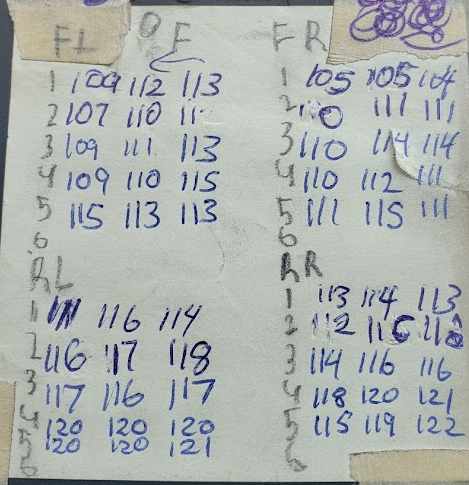 FL °F FR
1 109 112 113 1 105 105 104
2 107 110 2 110 111 111
3 109 111 113 3 110 114 114
4 109 110 115 4 110 112 111
5 115 113 113 5 111 115 111
6 6
RL RR
1 111 116 114 1 113 114 113
2 116 117 118 2 112 116
3 117 116 117 3 114 116 116
4 120 120 120 4 118 120 121
5 120 120 121 5 115 119 122
6 6